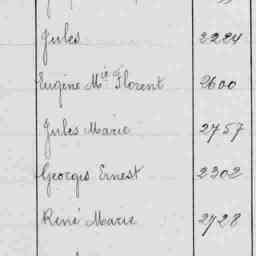 Jules 2224
Eugène Mie Florent 2600
Jules Marie 2757
Georges Ernest 2302
René Marie 2728